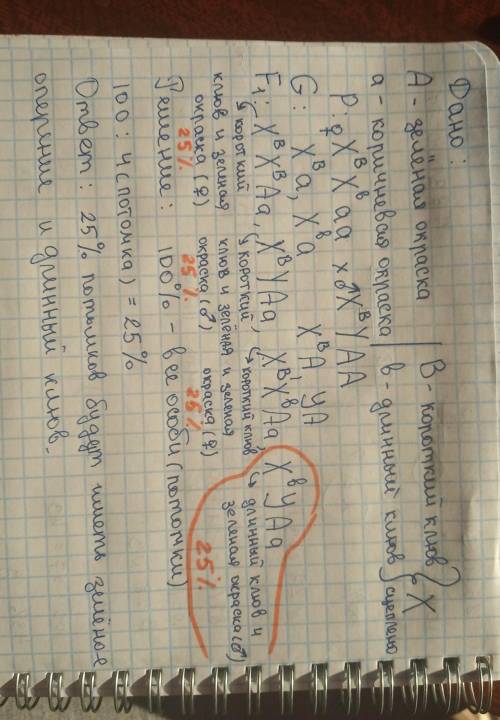 Дано:
А - зелёная окраска | В - короткий клюв } X
а - коричневая окраска | в - длинный клюв } сцеплено
P: ♀ XᴮXᵇ aa × ♂ XᴮY AA
G: Xᴮa, Xᵇa XᴮA YA
F₁: XᴮXᴮAa, XᴮYAa, XᴮXᵇAa, XᵇYAa
↳ короткий клюв и зеленая окраска (♀) 25%
↳ короткий клюв и зелёная окраска (♂) 25%
↳ короткий клюв и зеленая окраска (♀) 25%
↳ длинный клюв и зеленая окраска (♂) 25%
Решение: 100% - все особи (потомки)
100 : 4 (потомка) = 25%
Ответ: 25% потомков будут иметь зелёное
оперение и длинный клюв.